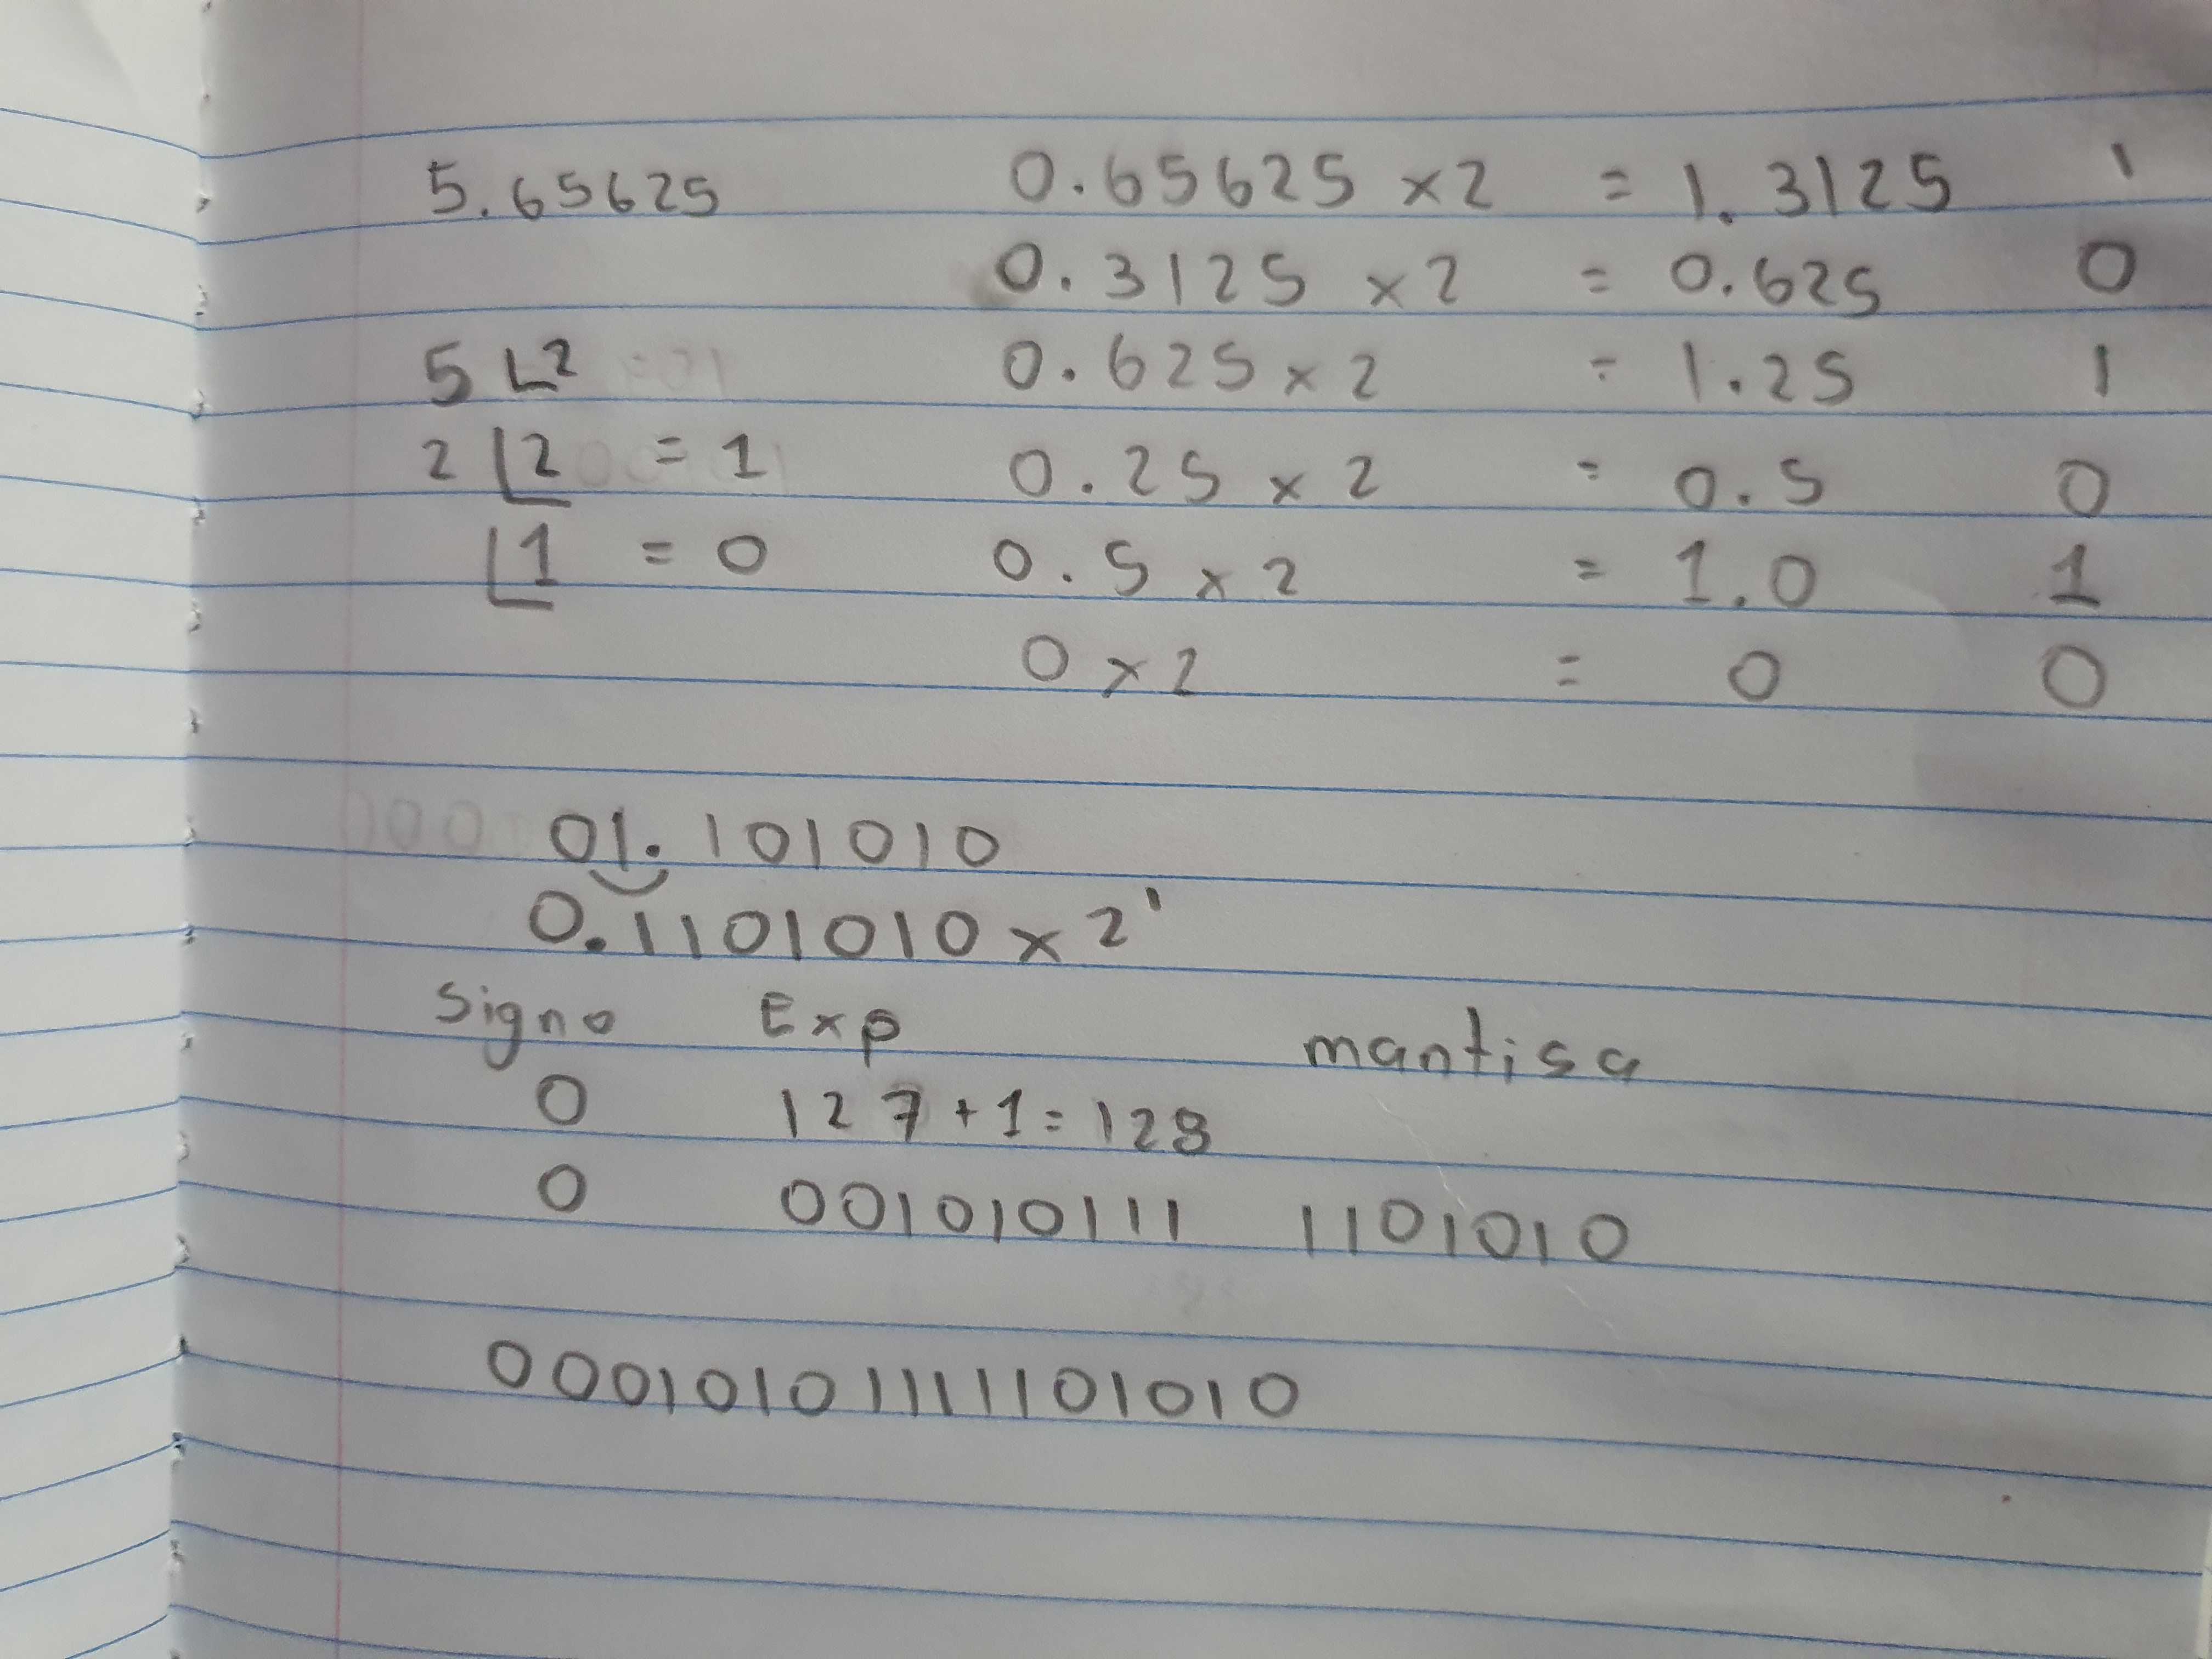 5.65625 0.65625 x2 = 1.3125 1
0.3125 x2 = 0.625 0
5 2 0.625 x 2 = 1.25 1
2 2 = 1 0.25 x 2 = 0.5 0
1 = 0 0.5 x 2 = 1.0 1
0 x 2 = 0 0
01.101010
0.1101010 x 2¹
Signo Exp mantisa
0 127+1=128
0 001010111 1101010
00010101111101010